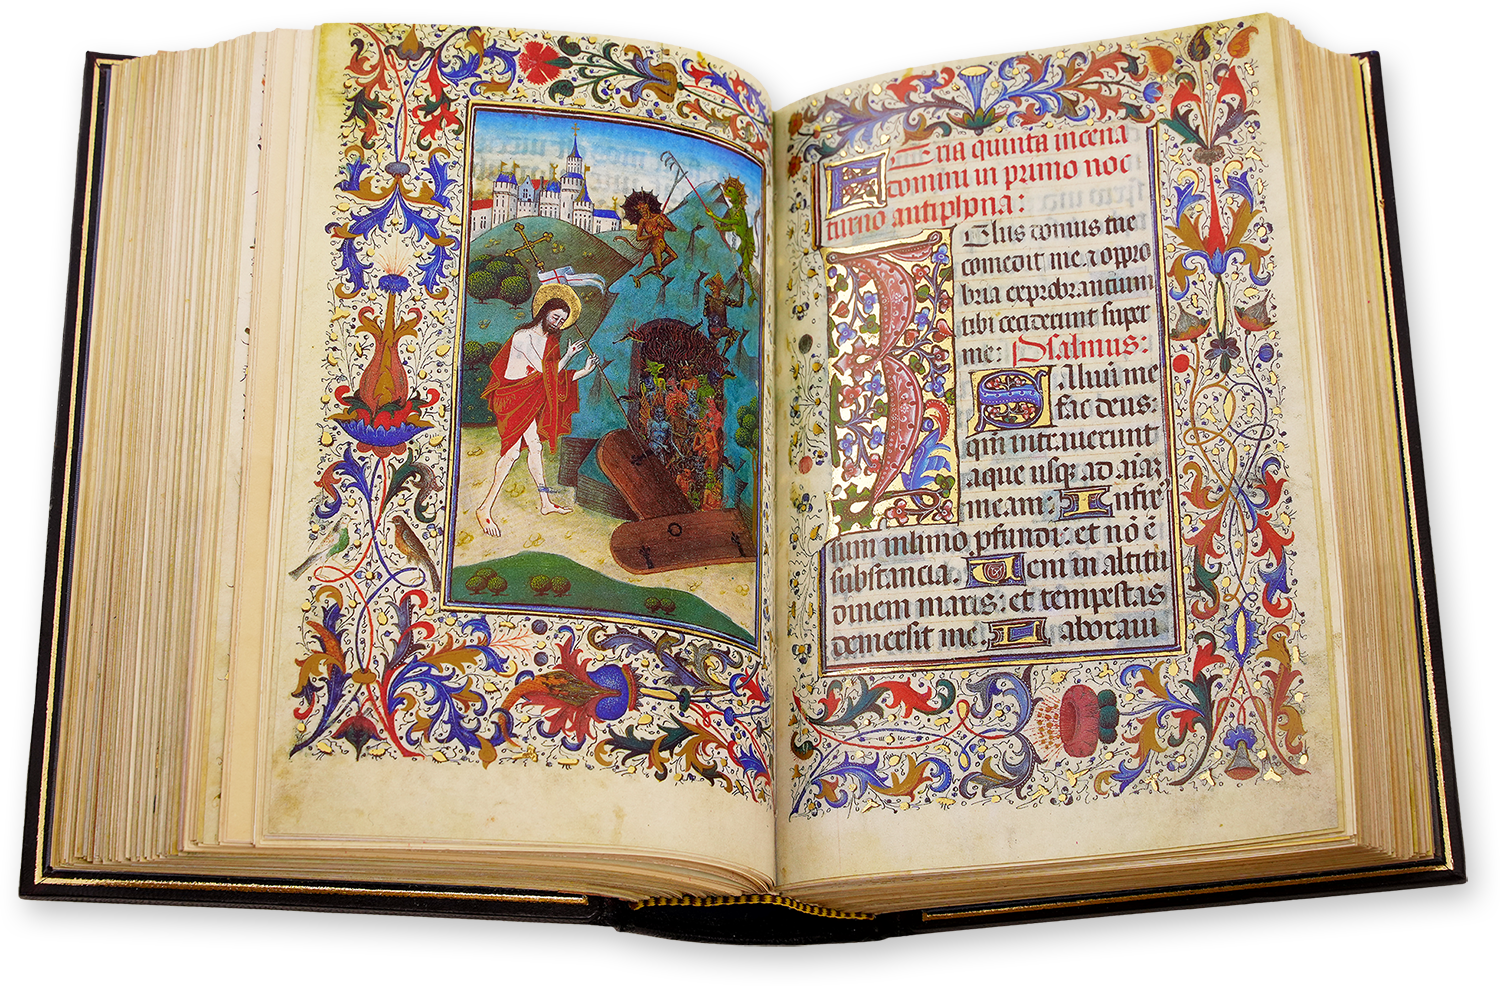 FEria quinta in cena
domini in primo noc
turno antiphona:
ZElus domus tue
comedit me. ⁊ oppro
bria exprobrantium
tibi ceciderunt super
me: Psalmus:
SAluū me
fac deus:
qm̄ intrauerunt
aque usqꝫ ad aīaꝫ
meam: Infix
sum in limo pfundi: et nō ē
substancia. Ueni in altitu
dinem maris: et tempestas
demersit me. Laboraui